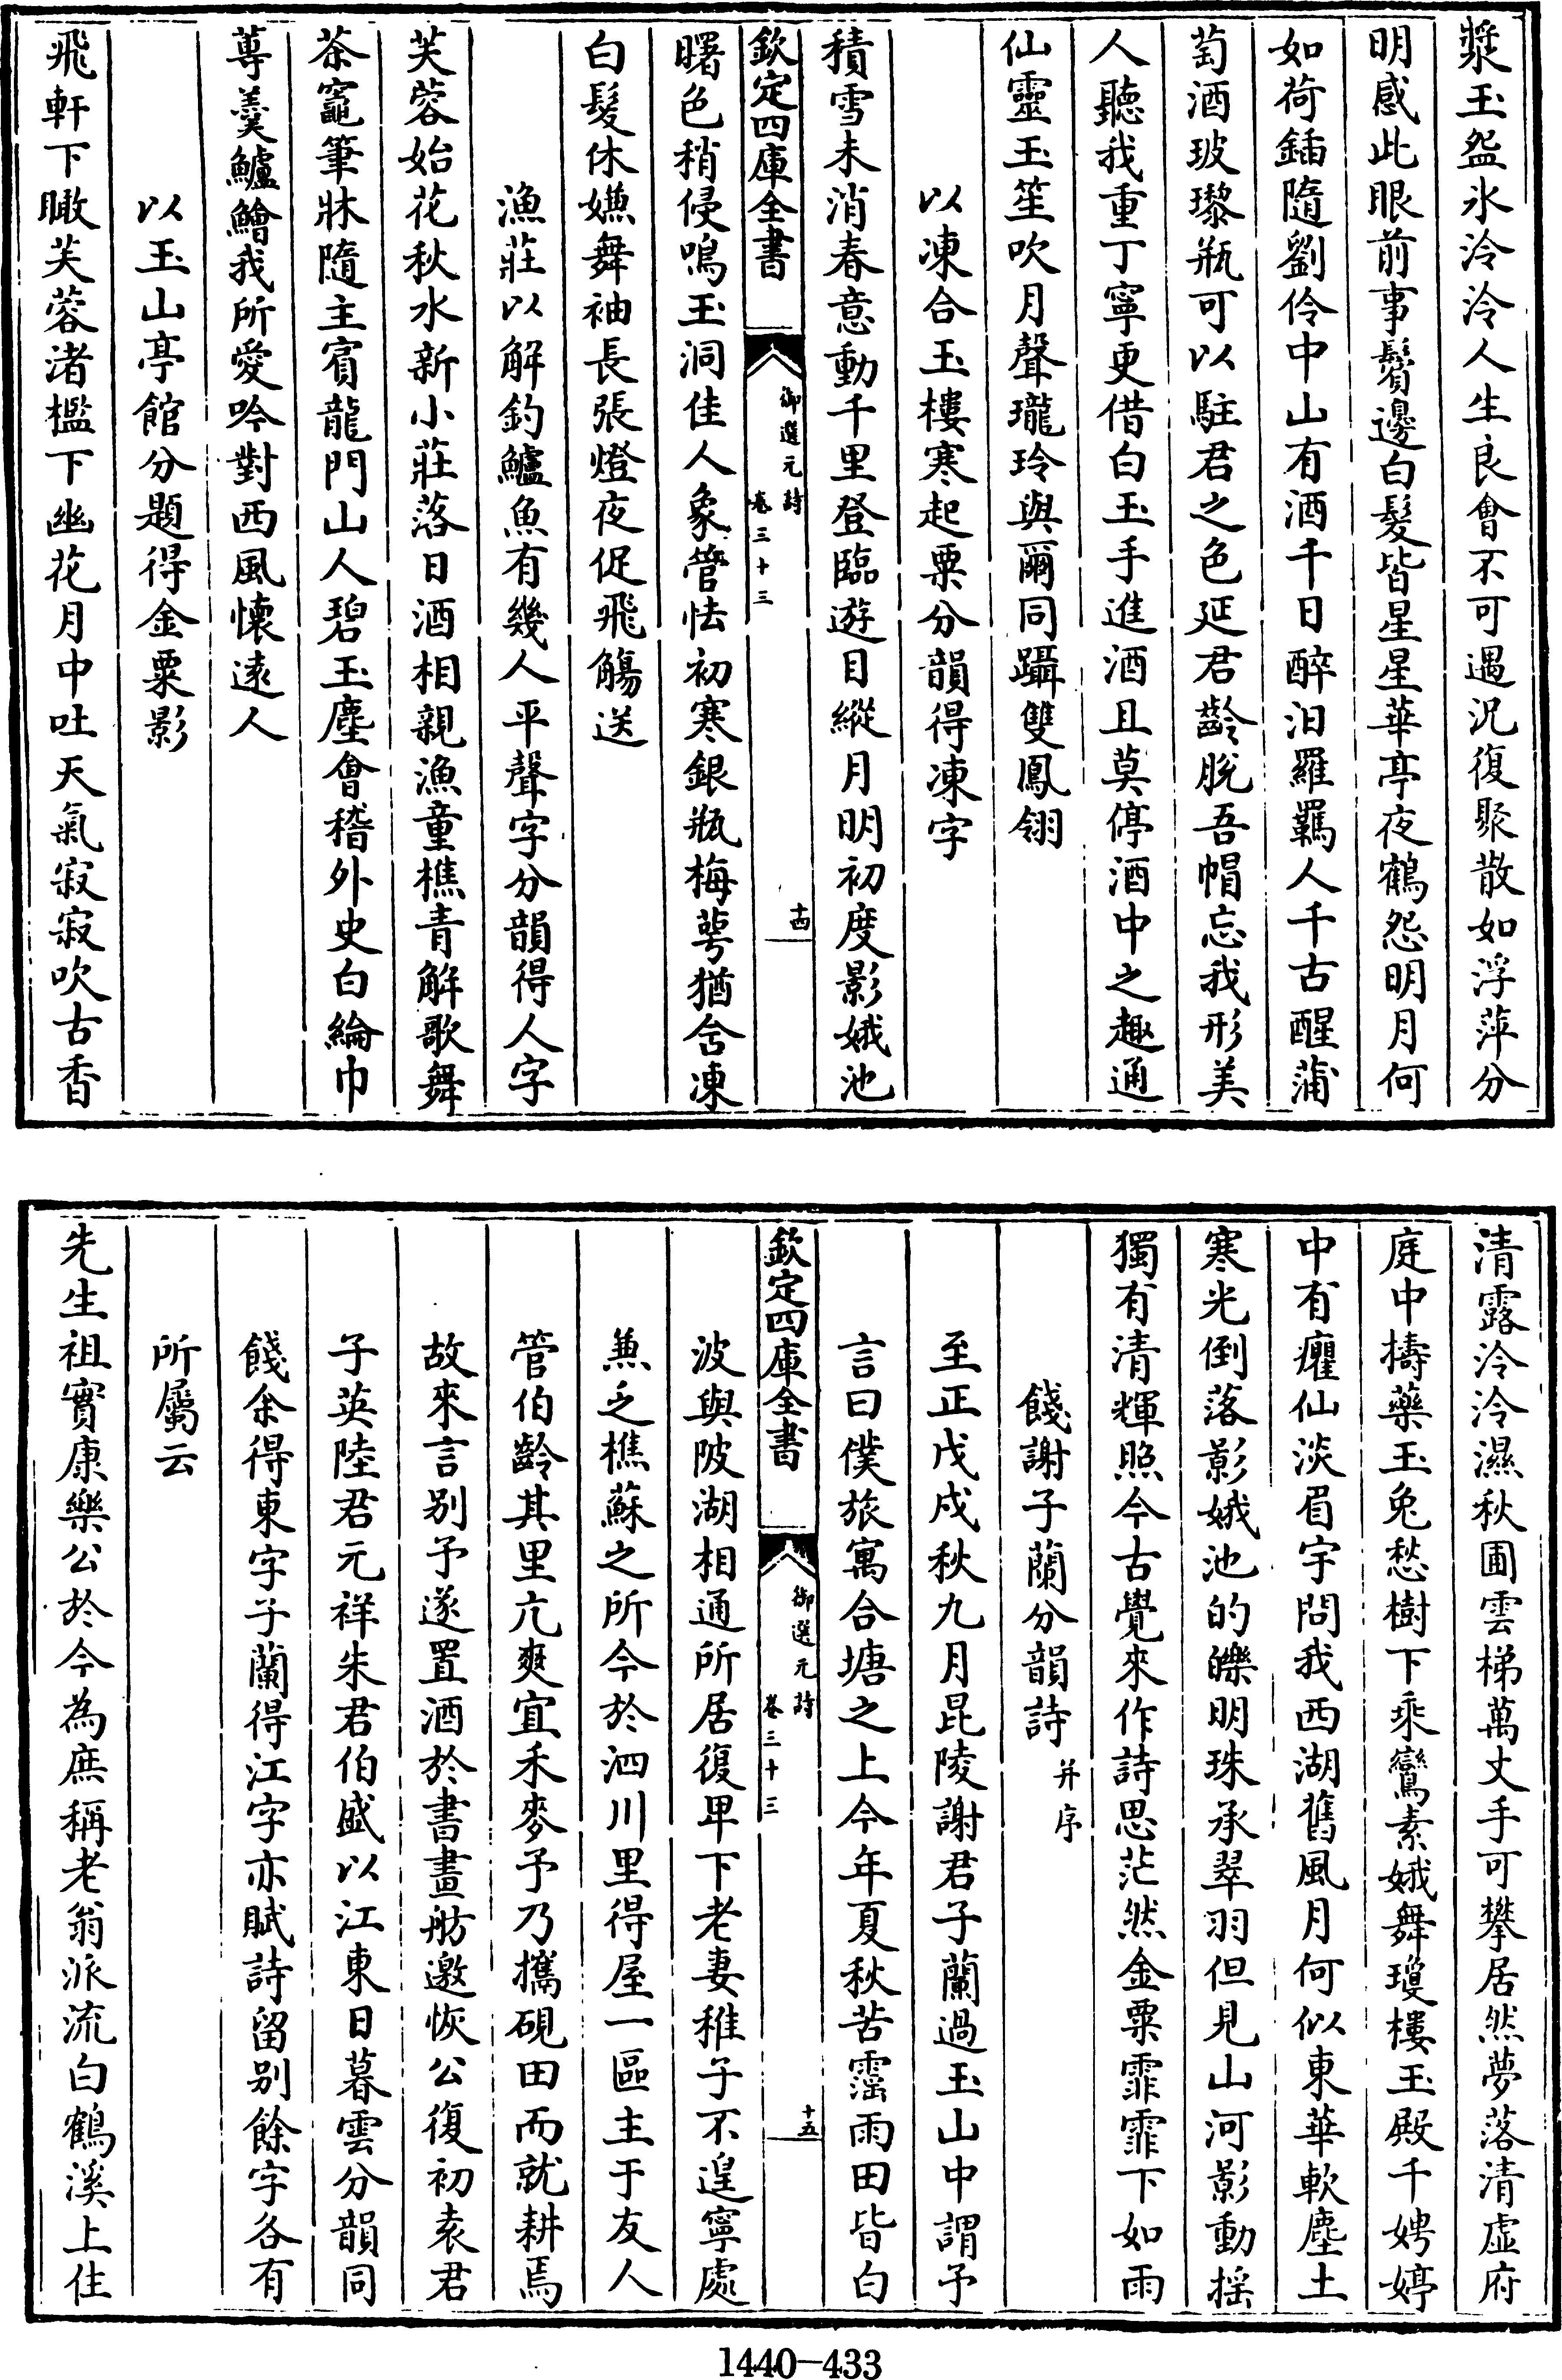 漿玉盌氷泠泠人生良會不可遇況復聚散如浮萍分
明感此眼前事鬢邊白髮皆星星華亭夜鶴怨明月何
如荷鍤隨劉伶中山有酒千日醉汨羅羈人千古醒蒲
萄酒玻瓈瓶可以駐君之色延君齡脫吾帽忘我形美
人聽我重丁寧更借白玉手進酒且莫停酒中之趣通
仙靈玉笙吹月聲瓏玲與爾同躡雙鳳翎
以凍合玉樓寒起粟分韻得凍字
積雪未消春意動千里登臨遊目縱月明初度影娥池
欽定四庫全書
御選元詩
卷三十三
十四
曙色稍侵鳴玉洞佳人象管怯初寒銀瓶梅萼猶含凍
白髮休嫌舞袖長張燈夜促飛觴送
漁莊以解釣鱸魚有幾人平聲字分韻得人字
芙蓉始花秋水新小莊落日酒相親漁童樵青解歌舞
茶竈筆牀隨主賓龍門山人碧玉塵會稽外史白綸巾
蓴羹鱸鱠我所愛吟對西風懷遠人
以玉山亭館分題得金粟影
飛軒下瞰芙蓉渚檻下幽花月中吐天氣寂寂吹古香
清露泠泠濕秋圃雲梯萬丈手可攀居然夢落清虛府
庭中擣藥玉兔愁樹下乘鸞素娥舞瓊樓玉殿千娉婷
中有癯仙淡眉宇問我西湖舊風月何似東華軟塵土
寒光倒落影娥池的皪明珠承翠羽但見山河影動搖
獨有清輝照今古覺來作詩思茫然金粟霏霏下如雨
餞謝子蘭分韻詩并序
至正戊戌秋九月昆陵謝君子蘭過玉山中謂予
言曰僕旅寓合塘之上今年夏秋苦霪雨田皆白
欽定四庫全書
御選元詩
卷三十三
十五
波與陂湖相通所居復卑下老妻稚子不遑寧處
兼乏樵蘇之所今於泗川里得屋一區主于友人
管伯齡其里亢爽宜禾麥予乃攜硯田而就耕焉
故來言别予遂置酒於書畫舫邀恢公復初袁君
子英陸君元祥朱君伯盛以江東日暮雲分韻同
餞余得東字子蘭得江字亦賦詩留别餘字各有
所屬云
先生祖實康樂公於今為庶稱老翁派流白鶴溪上住
1440-433